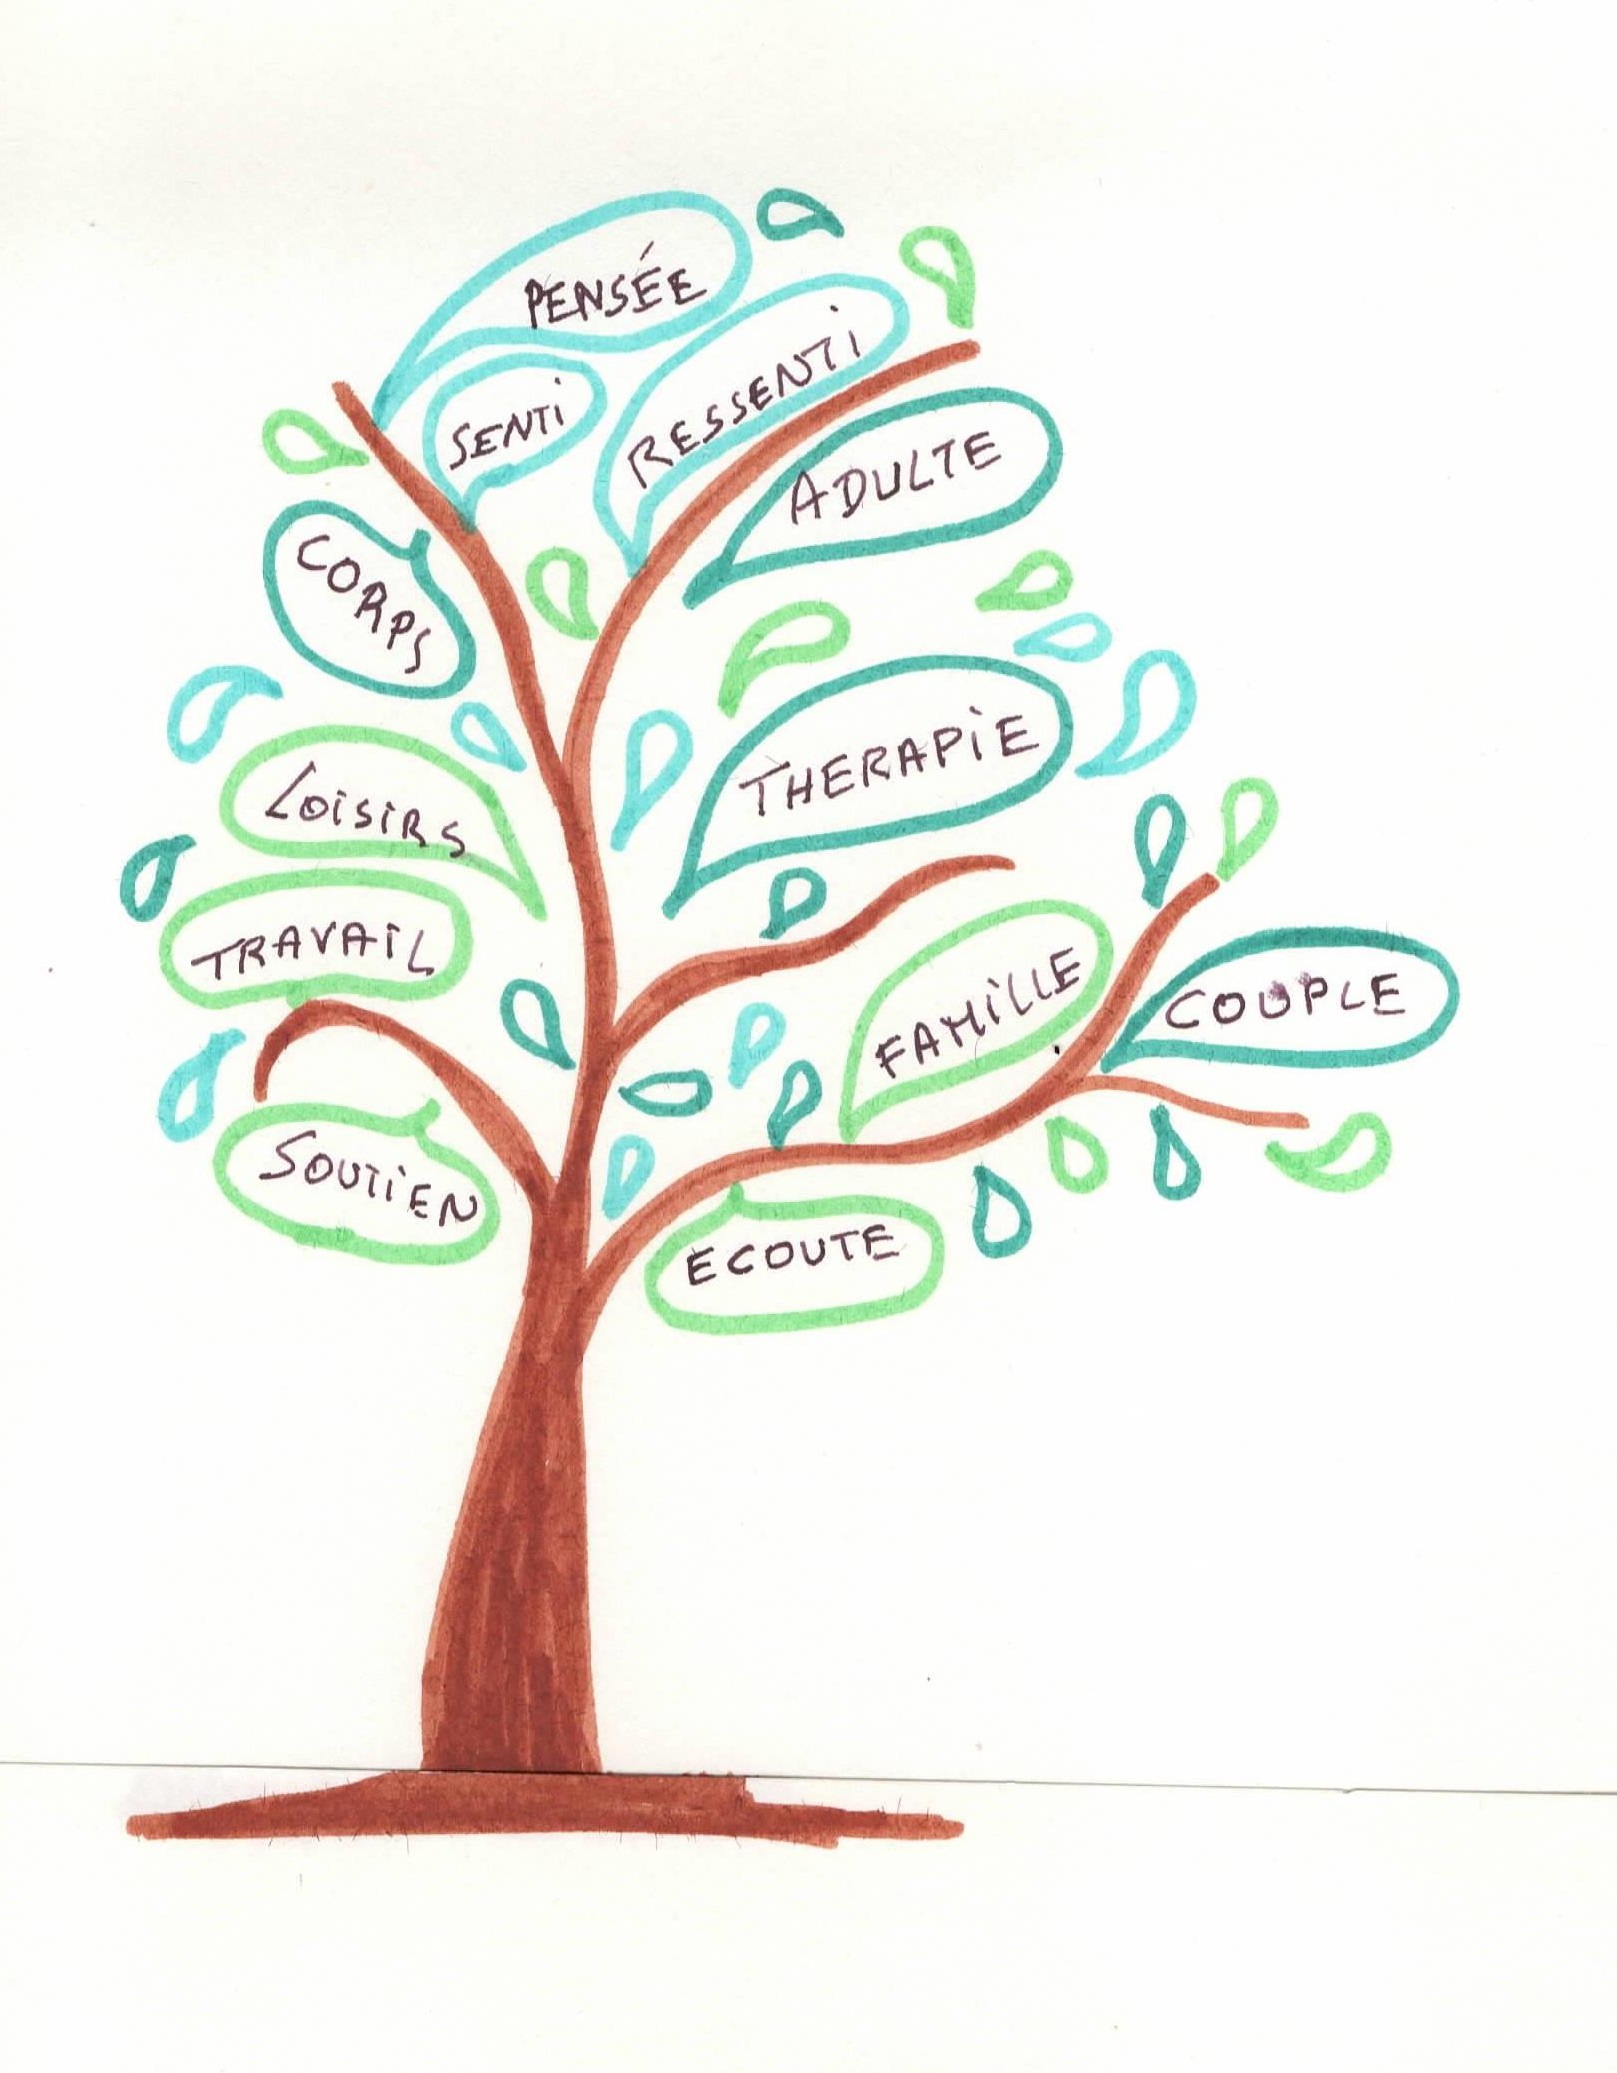 PENSÉE
SENTI
RESSENTI
ADULTE
CORPS
THERAPiE
LOiSiRS
TRAVAiL
FAMiLLE
COUPLE
SOUTiEN
ECOUTE